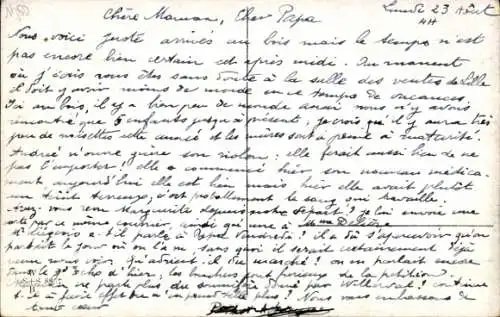 Lundi 23 Août
4H
Chère Maman, Cher Papa
Nous voici juste arrivés au bois mais le temps n'est
pas encore bien certain cet après midi. Au moment
où j'écris vous êtes sans doute à la salle des ventes de Lille
il doit y avoir moins de monde en ce temps de vacances
Ici au bois, il y a bien peu de monde aussi nous n'y avons
rencontré que 6 enfants jusqu'à présent, je crois qu'il y aura très
peu de noisettes cette année et les mûres sont à peine à maturité.
Andrée n'ouvre guère son violon; elle ferait aussi bien de ne
pas l'emporter! elle a commencé hier son nouveau médica-
ment aujourd'hui elle est bien mais hier elle avait plutôt
un petit, c'est probablement le sang qui travaille.
Avez-vous revu Marguerite depuis notre départ? je lui envoie une
carte par ce même courrier, ainsi que une à Mme D
a t'il parlé à? il a dû s'apercevoir qu'on
partait le jour où on l'a vu sans quoi il serait certainement déjà
venu nous voir, du marché! on en parlait encore
dans l'Echo d'hier; les bouchers sont furieux de la pétition.
ne parle plus du donné par continue
t-il à faire effet ne n'en prend-elle plus? Nous vous embrassons de
tout cœur